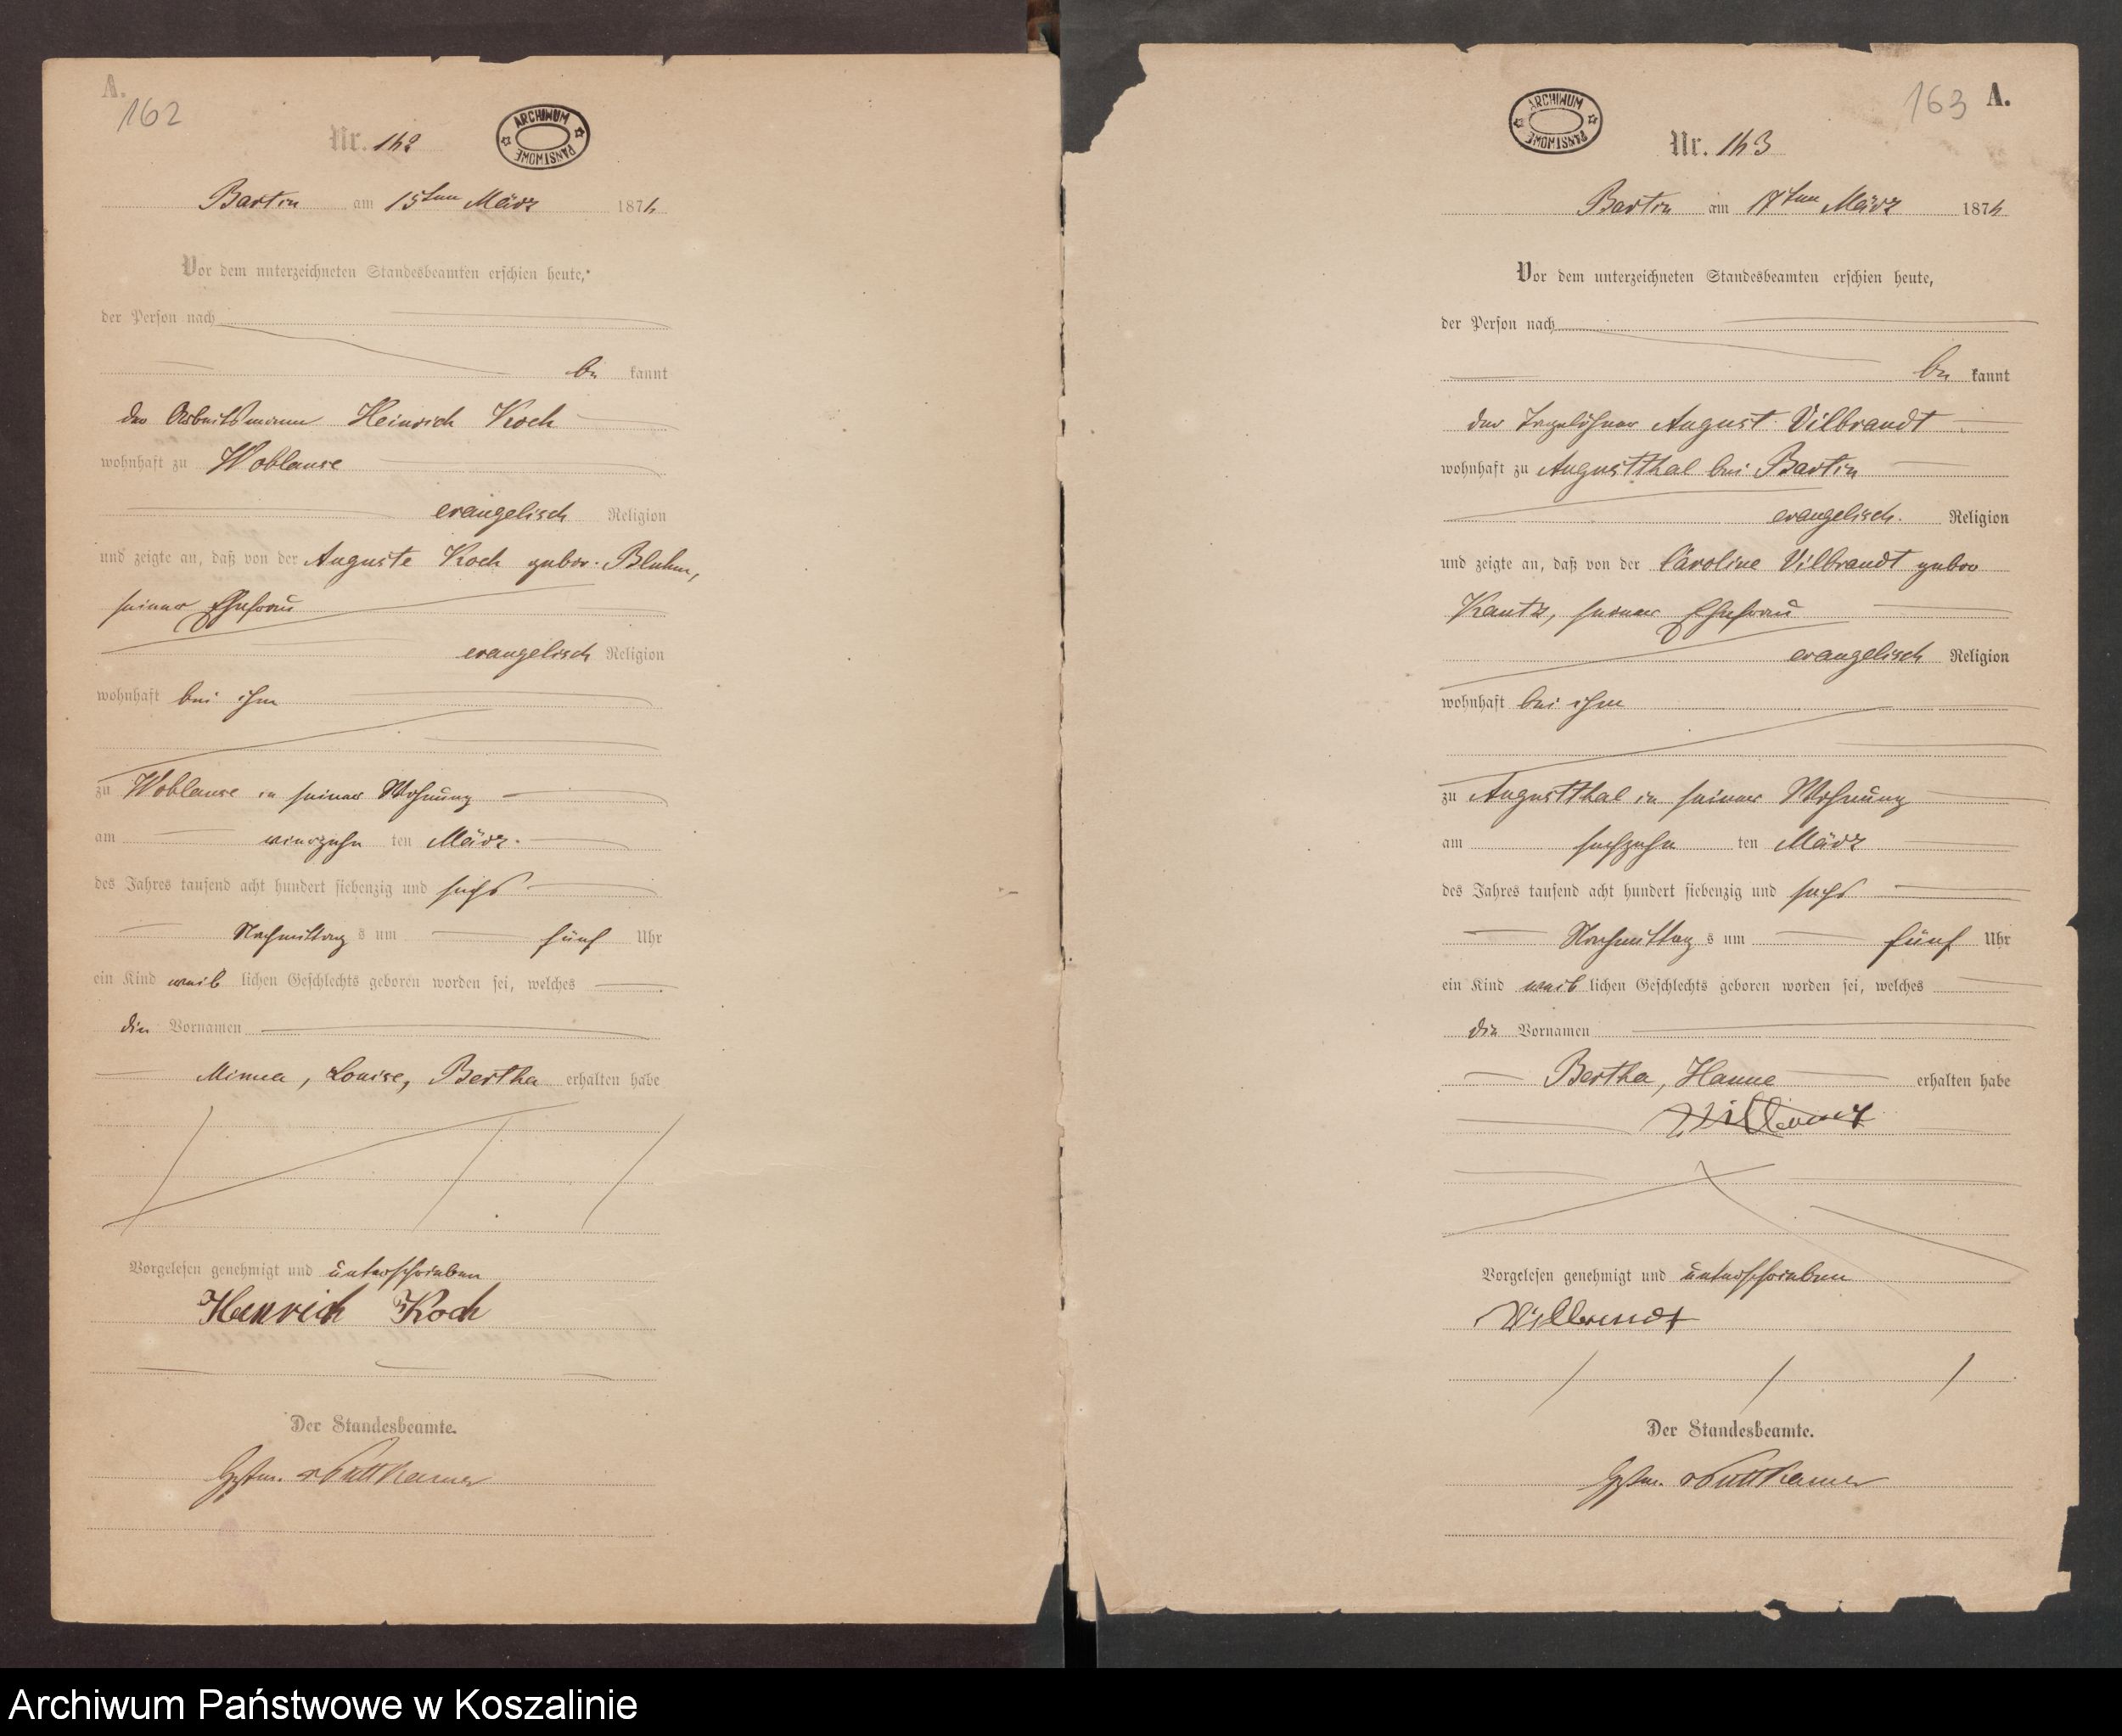 A.
162
ARCHIWUM PAŃSTWOWE
Nr. 162
Bartin am 15ten März 1876
Vor dem unterzeichneten Standesbeamten erschien heute,
der Person nach
be kannt
der Arbeitsmann Heinrich Koch
wohnhaft zu Woblanse
evangelisch Religion
und zeigte an, daß von der Auguste Koch gebor. Bluhm,
seiner Ehefrau
evangelisch Religion
wohnhaft bei ihm
zu Woblanse in seiner Wohnung
am vierzehn ten März
des Jahres tausend acht hundert siebenzig und sechs
Nachmittag s um fünf Uhr
ein Kind weib lichen Geschlechts geboren worden sei, welches
die Vornamen
Minna, Louise, Bertha erhalten habe
Vorgelesen genehmigt und unterschrieben
Heinrich Koch
Der Standesbeamte.
v Puttkamer
163 A.
ARCHIWUM PAŃSTWOWE
Nr. 163
Bartin am 17ten März 1876
Vor dem unterzeichneten Standesbeamten erschien heute,
der Person nach
be kannt
der Tagelöhner August Vilbrandt
wohnhaft zu Augustthal bei Bartin
evangelisch. Religion
und zeigte an, daß von der Caroline Vilbrandt gebor
Kautz, seiner Ehefrau
evangelisch Religion
wohnhaft bei ihm
zu Augustthal in seiner Wohnung
am sechzehn ten März
des Jahres tausend acht hundert siebenzig und sechs
Nachmittag s um fünf Uhr
ein Kind weib lichen Geschlechts geboren worden sei, welches
die Vornamen
Bertha, Hanne erhalten habe
Vorgelesen genehmigt und unterschrieben
Vilbrandt
Der Standesbeamte.
v Puttkamer
Archiwum Państwowe w Koszalinie